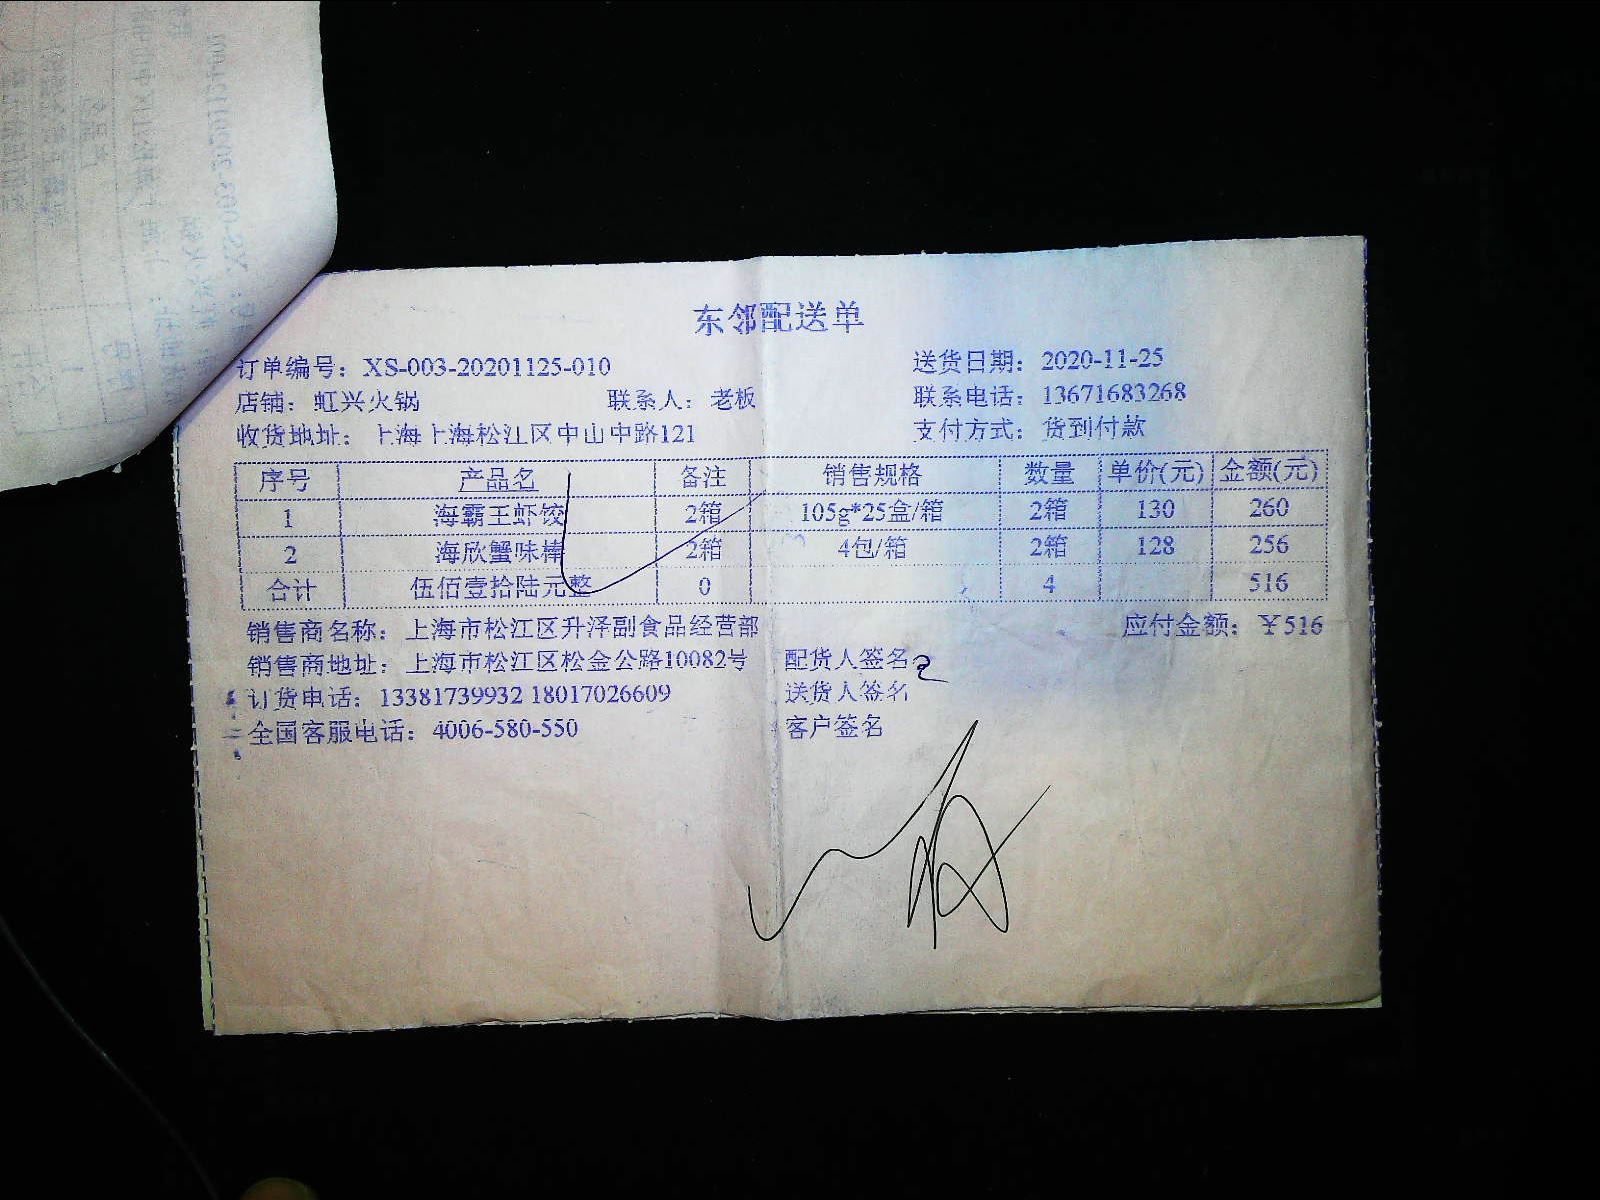 东邻配送单
订单编号：XS-003-20201125-010 送货日期：2020-11-25
店铺：虹兴火锅 联系人：老板 联系电话：13671683268
收货地址：上海上海松江区中山中路121 支付方式：货到付款
序号 产品名 备注 销售规格 数量 单价(元) 金额(元)
1 海霸王虾饺 2箱 105g*25盒/箱 2箱 130 260
2 海欣蟹味棒 2箱 4包/箱 2箱 128 256
合计 伍佰壹拾陆元整 0 4 516
销售商名称：上海市松江区升泽副食品经营部 应付金额：￥516
销售商地址：上海市松江区松金公路10082号 配货人签名
订货电话：13381739932 18017026609 送货人签名
全国客服电话：4006-580-550 客户签名